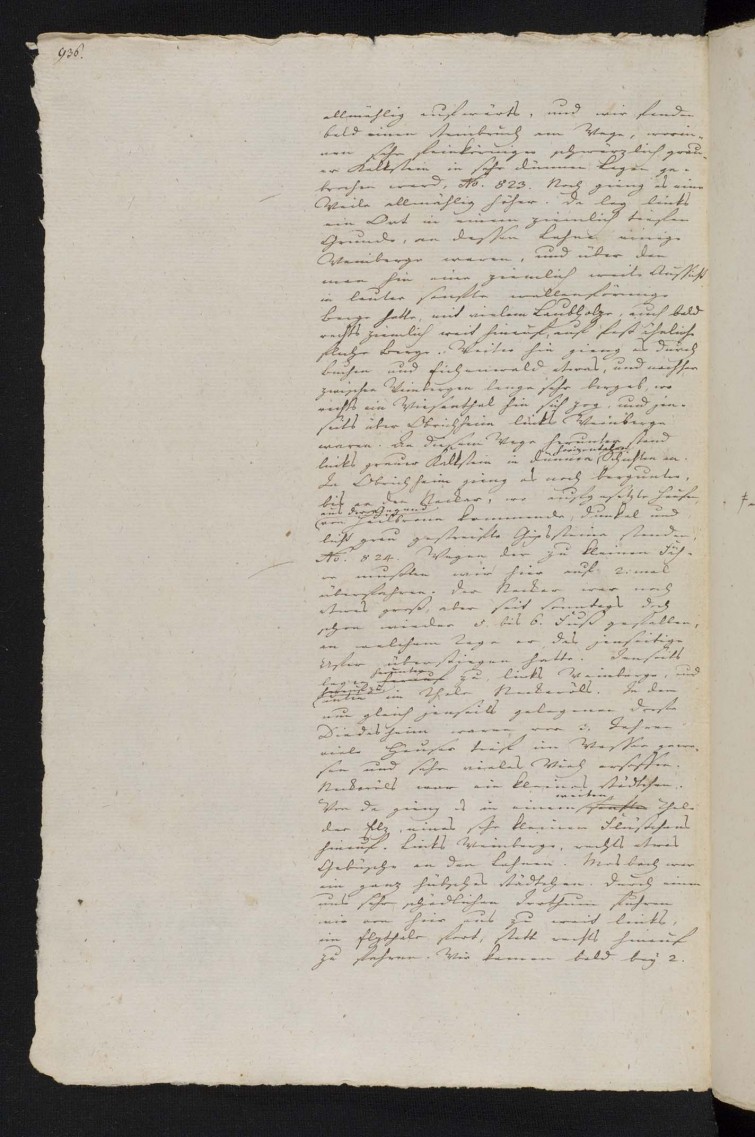 936.
allmählig aufwärts, und wir fanden
bald einen Steinbruch am Wege, worin-
nen sehr feinkörniger schwärzlich grau-
er Kalkstein in sehr dünnen Lagen ge-
brochen ward, No. 823. Noch gieng es eine
Weile allmählig höher. Da lag links
ein Ort in einem ziemlich tiefen
Grunde, an dessen Lehne einige
Weinberge waren, und über den
man hin eine ziemlich weite Aussicht
in lauter sanfte wellenförmige
Berge hatte, mit vielem Laubholze, auch bald
rechts ziemlich weit hinauf, auf fast ähnliche
flache Berge. Weiter hin gieng es durch
Buchen und Eichenwald etwas, und nachher
zwischen Weinbergen lange sehr bergab, wo
rechts ein Wiesenthal hin sich zog, und jen-
seits über Obrichheim links Weinberge
waren. An diesem Wege herunter stand
links grauer Kalkstein in dünnen horizontalen Schichten an.
In Obrichheim gieng es noch bergunter,
bis an den Necker, wo aufgesetzte Haufen
aus der Gegend
von Heilbronn kommende, dunkel und
licht grau gestreifte Gipssteine standen,
No. 824. Wegen der zu kleinen Fäh-
re mußten wir hier auf 2. mal
überfahren. Der Necker war noch
etwas groß, aber seit Sonntags doch
schon wieder 5. bis 6. Fuß gefallen,
an welchem Tage er das jenseitige
Ufer überstiegen hatte. Jenseits
lagen herunter zu links Weinberge, und
unten im Thale Neckerels. In dem
nun gleich jenseits gelegenen Dorfe
Diedesheim waren vor 3. Jahren
viele Häuser tief im Wasser gewe-
sen und sehr vieles Vieh ersoffen.
Neckerels war ein kleines Städtchen.
Von da gieng es in einem weiten Thale
der Elz, eines sehr kleinen Flüßchens
hinauf. Links Weinberge, rechts etwas
Gebüsche an den Lehnen. Mosbach war
ein ganz hübsches Städtchen. Durch einen
uns sehr schädlichen Irrthum fuhren
wir von hier aus zu weit links,
im Elzthale fort, statt rechts hinauf
zu fahren. Wir kamen bald bey 2.